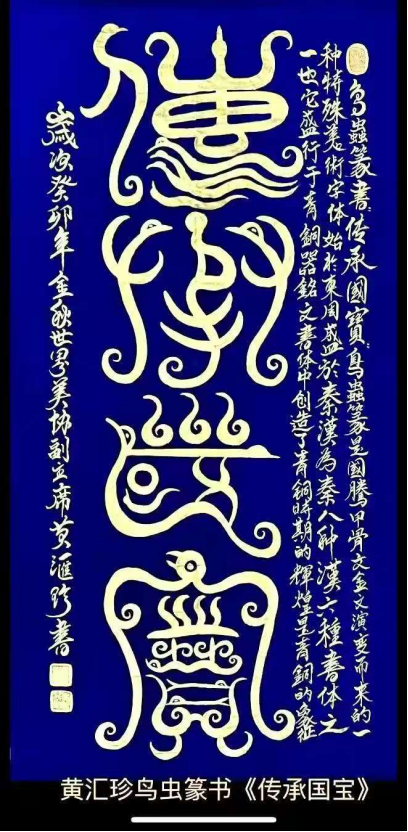 鸟蟲篆書传承國寶鳥蟲篆是國騰甲骨文金文演变而来的一
种特殊美術字体始於東周盛於秦漢為秦八种漢六種書体之
一也它盛行于青銅器銘文書体中创造了青銅時期的輝煌是青銅的象征
傳承國寶
歲次癸卯年金秋世界美协副主席黄滙珍書
黄汇珍鸟虫篆书《传承国宝》